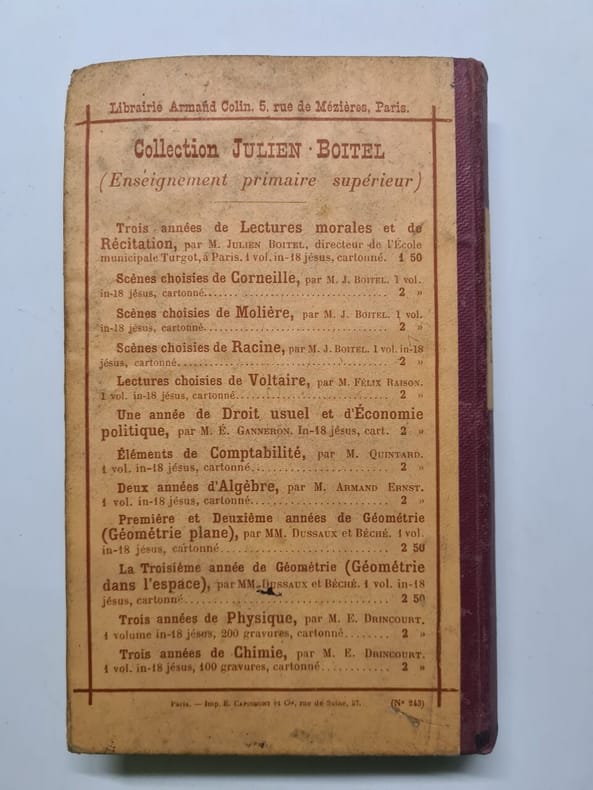 Librairie Armand Colin, 5, rue de Mézières, Paris.
Collection JULIEN · BOITEL
(Enseignement primaire supérieur)
Trois années de Lectures morales et de
Récitation, par M. JULIEN BOITEL, directeur de l'École
municipale Turgot, à Paris. 1 vol. in-18 jésus, cartonné. 1 50
Scènes choisies de Corneille, par M. J. BOITEL. 1 vol.
in-18 jésus, cartonné. 2 »
Scènes choisies de Molière, par M. J. BOITEL. 1 vol.
in-18 jésus, cartonné. 2 »
Scènes choisies de Racine, par M. J. BOITEL. 1 vol. in-18
jésus, cartonné. 2 »
Lectures choisies de Voltaire, par M. FÉLIX RAISON.
1 vol. in-18 jésus, cartonné. 2 »
Une année de Droit usuel et d'Économie
politique, par M. É. GANNERON. In-18 jésus, cart. 2 »
Éléments de Comptabilité, par M. QUINTARD.
1 vol. in-18 jésus, cartonné. 2 »
Deux années d'Algèbre, par M. ARMAND ERNST.
1 vol. in-18 jésus, cartonné. 2 »
Première et Deuxième années de Géométrie
(Géométrie plane), par MM. DUSSAUX et BÉCHÉ. 1 vol.
in-18 jésus, cartonné. 2 50
La Troisième année de Géométrie (Géométrie
dans l'espace), par MM. DUSSAUX et BÉCHÉ. 1 vol. in-18
jésus, cartonné. 2 50
Trois années de Physique, par M. E. DRINCOURT.
1 volume in-18 jésus, 200 gravures, cartonné. 2 »
Trois années de Chimie, par M. E. DRINCOURT.
1 vol. in-18 jésus, 100 gravures, cartonné. 2 »
Paris. — Imp. E. CAPIOMONT et Cie, rue de Seine, 57. (N° 243)